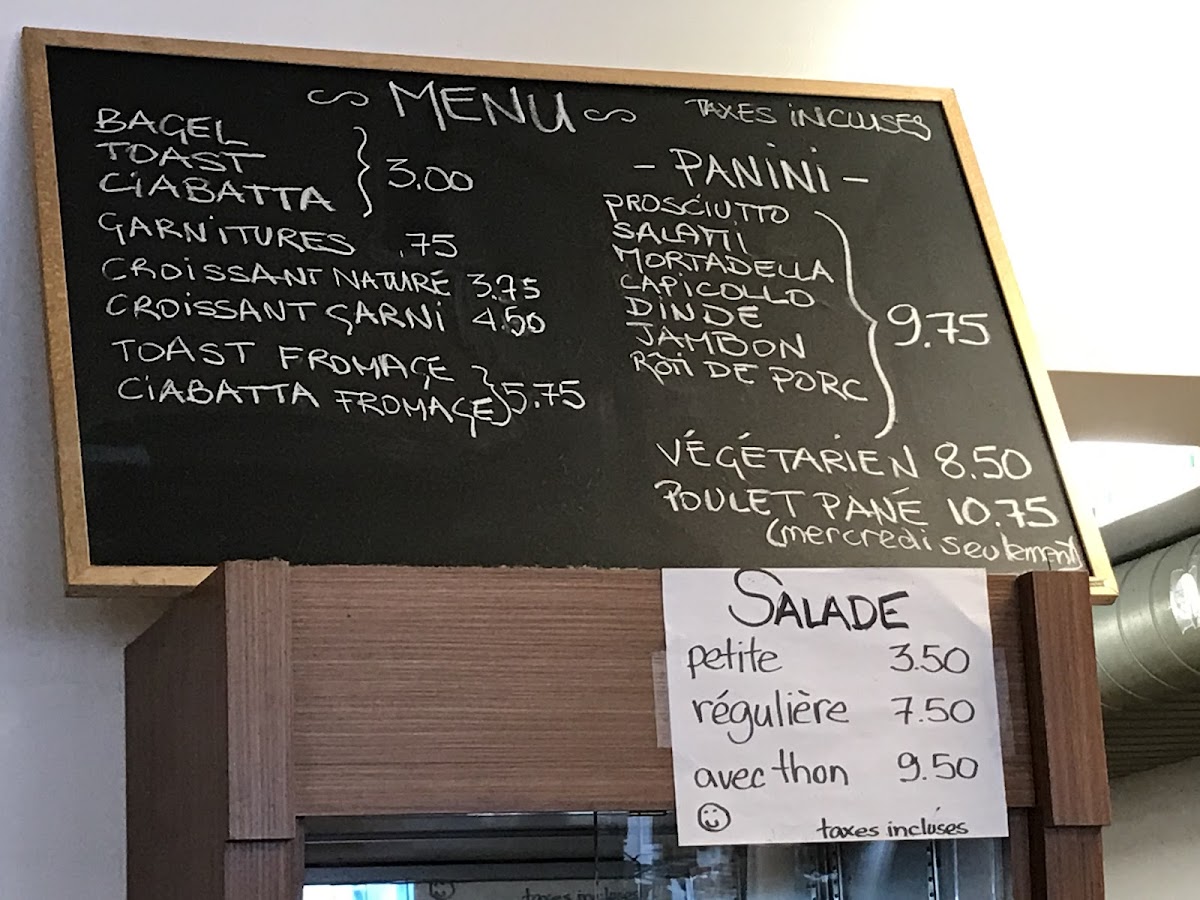 MENU
TAXES INCLUSES
BAGEL
TOAST
CIABATTA
3.00
GARNITURES .75
CROISSANT NATURE 3.75
CROISSANT GARNI 4.50
TOAST FROMAGE
CIABATTA FROMAGE
5.75
- PANINI -
PROSCIUTTO
SALAMI
MORTADELLA
CAPICOLLO
DINDE
JAMBON
RÔTI DE PORC
9.75
VÉGÉTARIEN 8.50
POULET PANÉ 10.75
(mercredi seulement)
SALADE
petite 3.50
régulière 7.50
avec thon 9.50
taxes incluses
taxes incluses